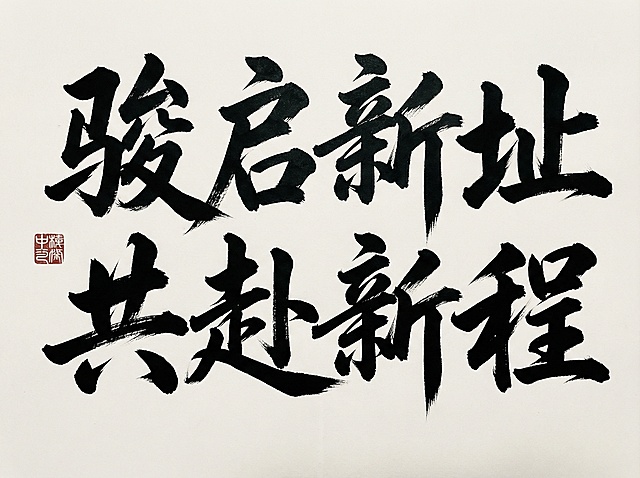 骏启新址
共赴新程